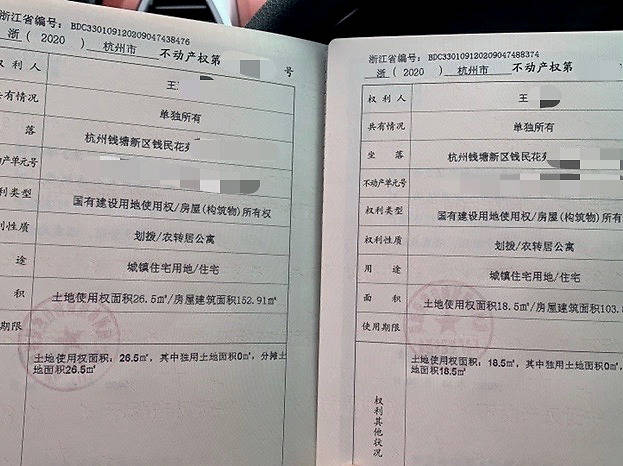 浙江省编号: BDC330109120209047438476
浙 ( 2020 ) 杭州市 不动产权第 号
利 人 王
共有情况 单独所有
落 杭州钱塘新区钱民花
动产单元号
利类型 国有建设用地使用权/房屋(构筑物)所有权
利性质 划拨/农转居公寓
途 城镇住宅用地/住宅
积 土地使用权面积26.5㎡/房屋建筑面积152.91㎡
期限
土地使用权面积: 26.5㎡, 其中独用土地面积0㎡, 分摊土
地面积26.5㎡
浙江省编号: BDC330109120209047488374
浙 ( 2020 ) 杭州市 不动产权第
权 利 人 王
共有情况 单独所有
坐 落 杭州钱塘新区钱民花
不动产单元号
权利类型 国有建设用地使用权/房屋(构筑物)所有
权利性质 划拨/农转居公寓
用 途 城镇住宅用地/住宅
面 积 土地使用权面积18.5㎡/房屋建筑面积103.
使用期限
土地使用权面积: 18.5㎡, 其中独用土地面积0㎡,
地面积18.5㎡
权利其他状况